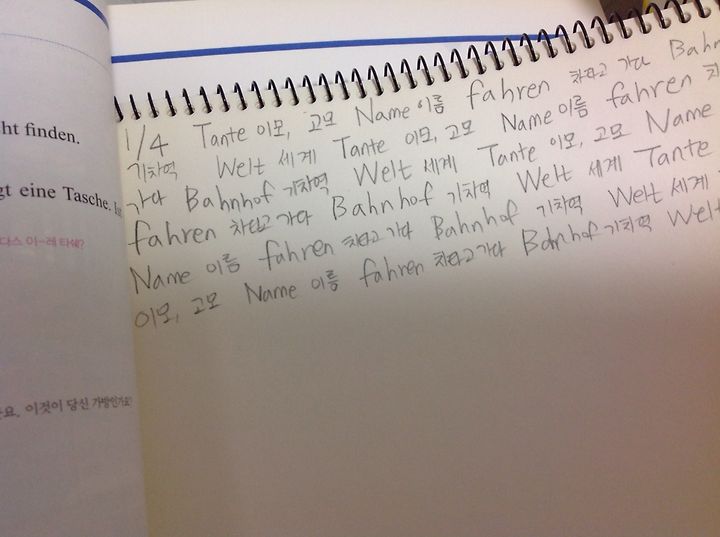 ht finden.
gt eine Tasche.
다스 이-레 타쉐?
요. 이것이 당신 가방인가요?
1/4 Tante 이모, 고모 Name 이름 fahren 차타고 가다 Bahn
기차역 Welt 세계 Tante 이모, 고모 Name 이름 fahren 차
가다 Bahnhof 기차역 Welt 세계 Tante 이모, 고모 Name
fahren 차타고 가다 Bahnhof 기차역 Welt 세계 Tante
Name 이름 fahren 차타고 가다 Bahnhof 기차역 Welt 세계
이모, 고모 Name 이름 fahren 차타고 가다 Bahnhof 기차역 Welt